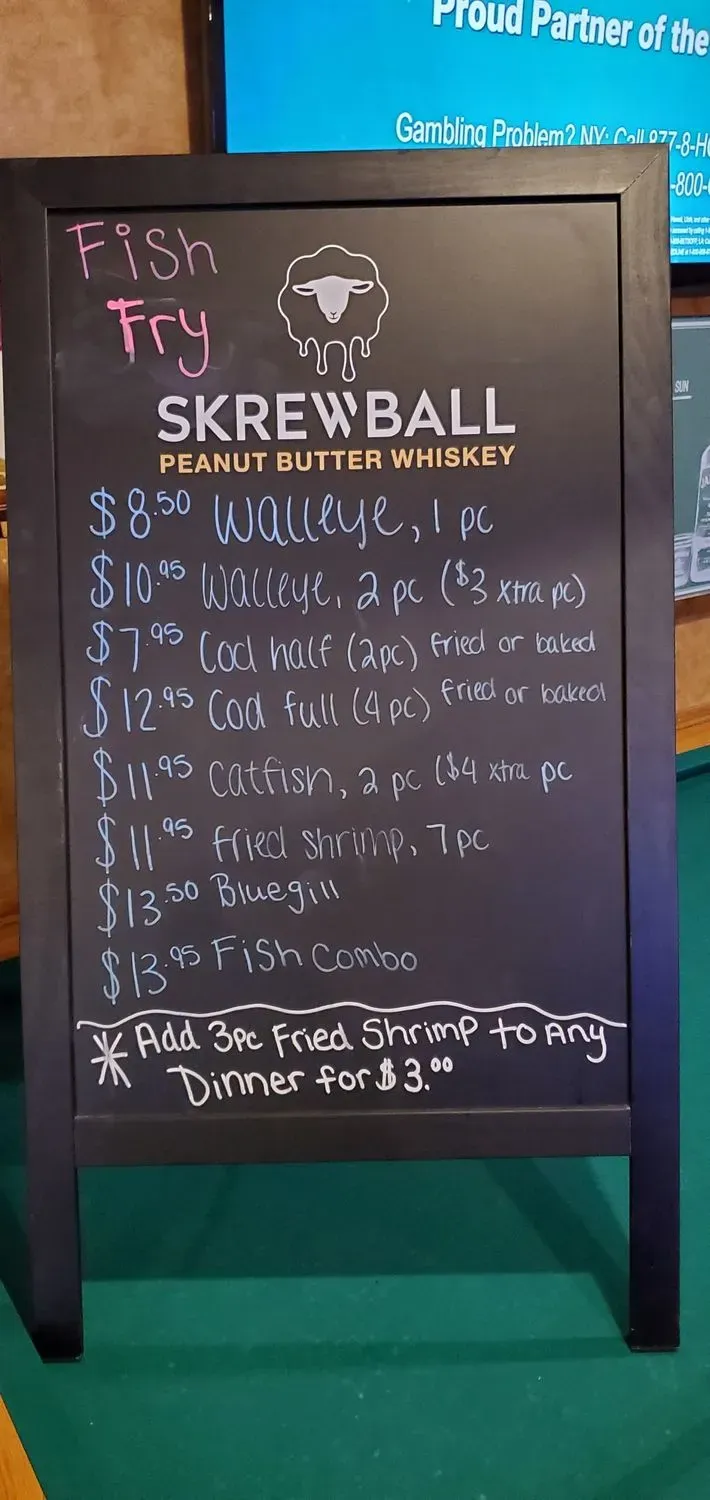 Proud Partner of the
Gambling Problem? NY: Call 877-8-H
-800-
SUN
Fish
Fry
SKREWBALL
PEANUT BUTTER WHISKEY
$8.50 Walleye, 1 pc
$10.95 Walleye, 2 pc ($3 xtra pc)
$7.95 Cod half (2pc) fried or baked
$12.95 Cod full (4pc) fried or baked
$11.95 Catfish, 2 pc ($4 xtra pc
$11.95 fried shrimp, 7pc
$13.50 Bluegill
$13.95 Fish Combo
* Add 3pc Fried Shrimp to Any
Dinner for $3.00